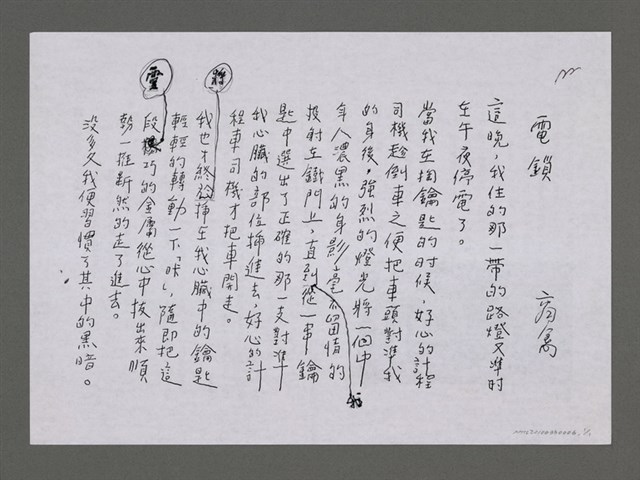 電鎖
商禽
這晚,我住的那一帶的路燈又準时
在午夜停電了。
當我在掏鑰匙的时候,好心的計程
司機趁倒車之便把車頭對準我
的身後,強烈的燈光將一個中
年人濃黑的身影毫不留情的
投射在鐵門上,直到從一串鑰
我
匙中選出了正確的那一支對準
我心臟的部位插進去,好心的計
程車司機才把車開走。
將
我也才終於插在我心臟中的鑰匙
輕輕的轉動一下「咔」,隨即把這
靈
段巧的金屬從心中拔出來順
勢一推斷然的走了進去。
沒多久我便習慣了其中的黑暗。